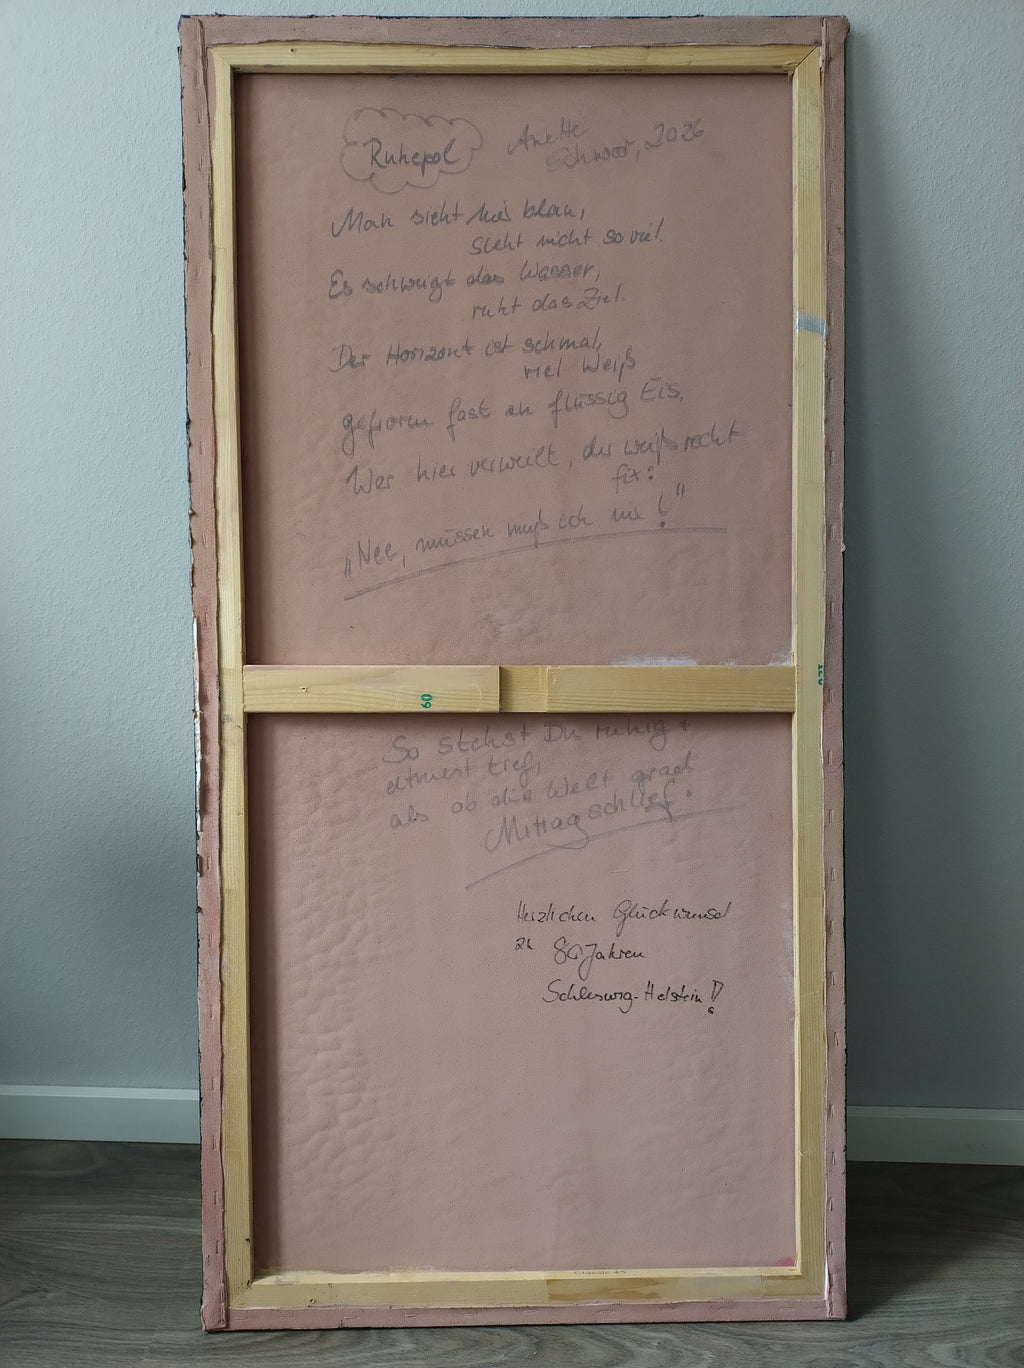 Ruhepol
Anette
Schwoor, 2026
Man sieht hier blau,
sieht nicht so viel.
Es schweigt das Wasser,
ruht das Ziel.
Der Horizont ist schmal,
viel Weiß
gefroren fast an flüssig Eis.
Wer hier verweilt, der weiß recht
fix:
„Nee, müssen muß ich nix!"
60
So stehst Du ruhig +
atmest tief,
als ob die Welt grad
Mittagschlief.
Herzlichen Glückwunsch
zu 80 Jahren
Schleswig-Holstein!
Classic 45